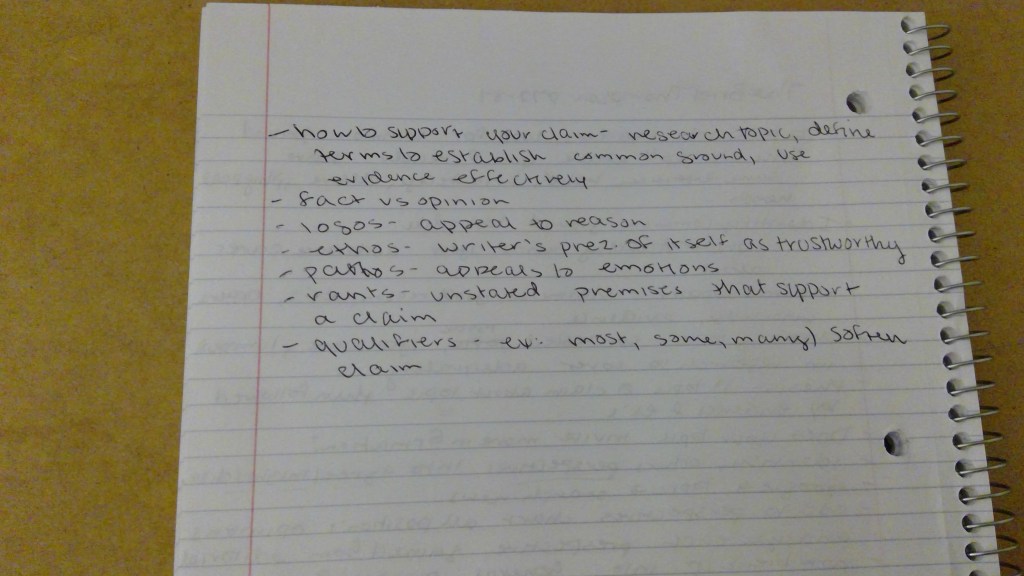 - how to support your claim - research topic, define
terms to establish common ground, use
evidence effectively
- fact vs opinion
- logos - appeal to reason
- ethos - writer's prez of itself as trustworthy
- pathos - appeals to emotions
- rants - unstated premises that support
a claim
- qualifiers - ex: most, some, many) soften
claim